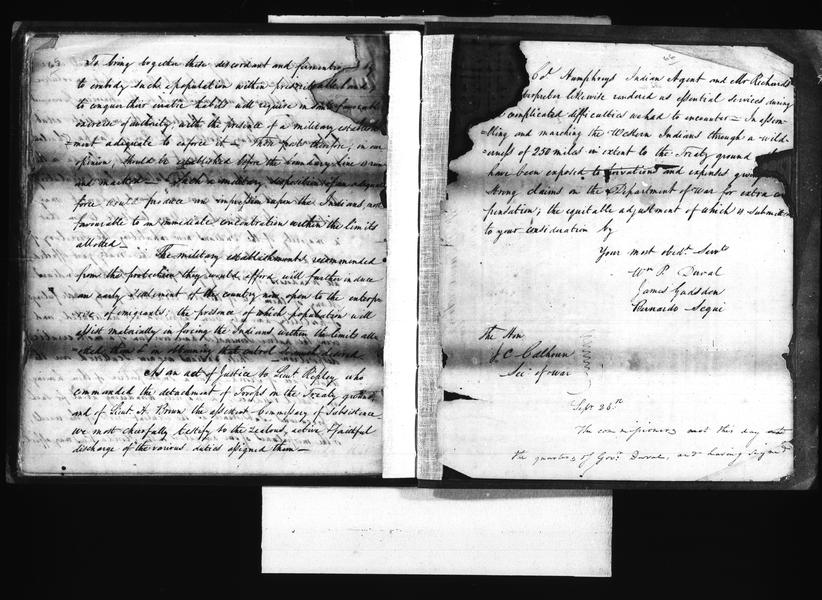 To bring together these discordant and fermenting
to embody such a population within prescribed limits and
to conquer their erratic habits will require in some favorable
exercise of authority, with the presence of a military establish-
=ment adequate to enforce it — Such posts therefore, in our
opinion, should be established before the boundary line is run
and marked — Such a military disposition of an adequate
force would produce an impression upon the Indians, most
favourable to an immediate concentration within the limits
allotted —
The military establishments recommended
from the protection they would afford will further induce
an early settlement of the country now open to the enterp-
rize of emigrants; the presence of which population will
assist materially in forcing the Indians within the limits allo-
=ted them & in obtaining that control so much desired
As an act of Justice to Lieut Ripley, who
commanded the detachment of Troops on the Treaty ground,
and of Lieut H. Brown the assistant Commissary of Subsistence
we most chearfully testify to the zealous, active & faithful
discharge of the various duties assigned them —
Col. Humphreys Indian Agent and Mr Richards
Interpreter likewise rendered us essential services during
complicated difficulties we had to encounter — In assem-
=bling and marching the Western Indians through a wild-
erness of 250 miles in extent to the Treaty ground
have been exposed to privations and expenses giving
strong claims on the Department of War for extra com-
pensation; the equitable adjustment of which is submitted
to your consideration by
Your most obedt. Servts
Wm P. Duval
James Gadsden
Bernardo Segui
The Hon
J C Calhoun
Sec. of War
Sept 26th
The commissioners met this day at
the quarters of Govr. Duval, and having signed